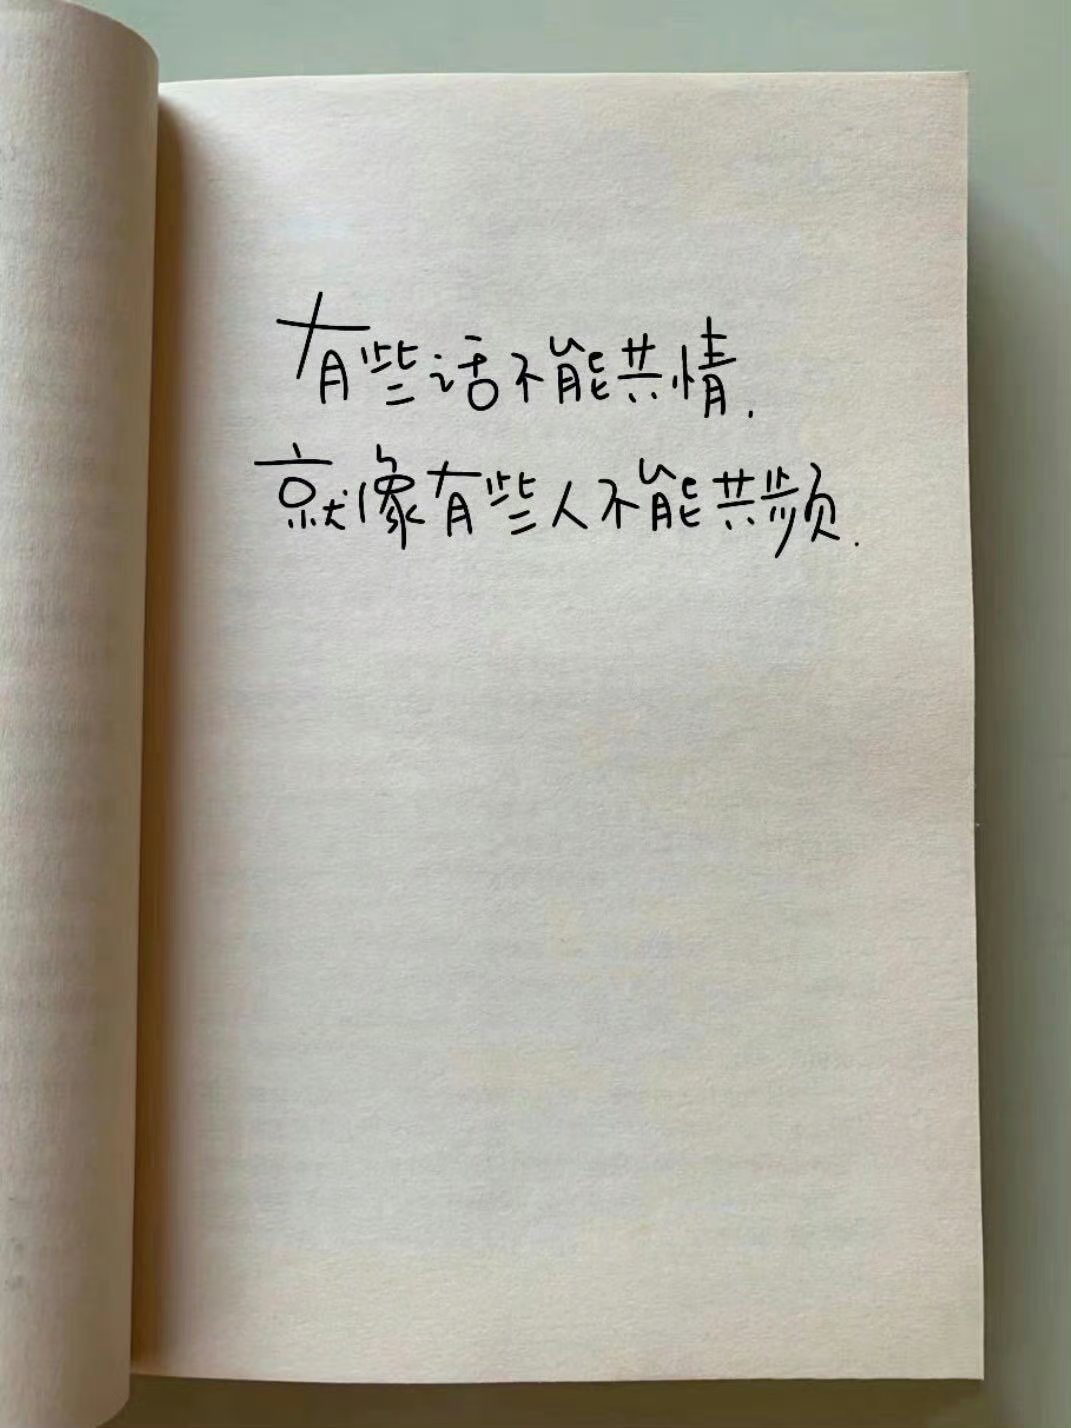 有些话不能共情.
就像有些人不能共频.